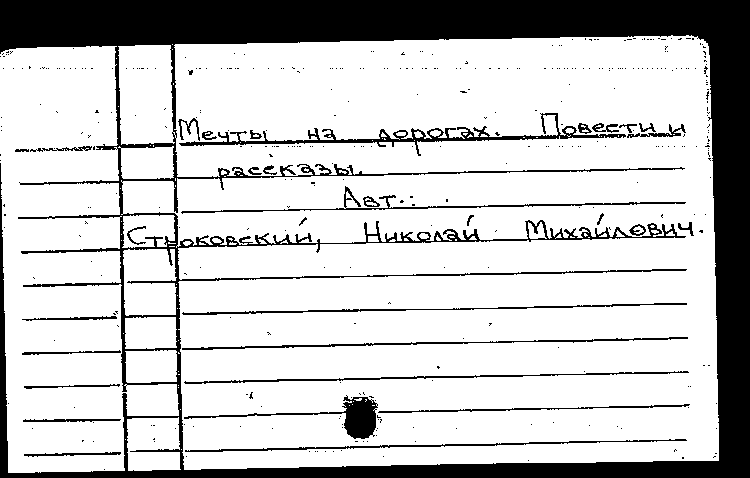 Мечты на дорогах. Повести и
рассказы.
Авт.:
Строковский, Николай Михайлович.